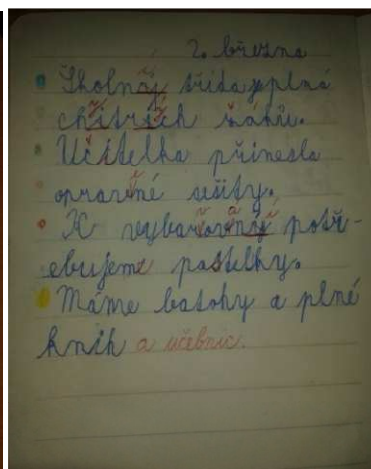 2. března
Školní třída je plná
chytrých žáků.
Učitelka přinesla
opravené sešity.
K vybarvování potř-
ebujeme pastelky.
Máme batohy a plné
knih a učebnic.